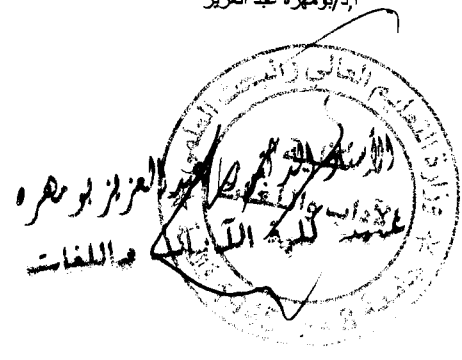 أ.د/بومهرة عبد العزيز
وزارة التعليم العالي والبحث العلمي
الأستاذ الدكتور عبد العزيز بو مهره
عميد كلية الآداب و اللغات